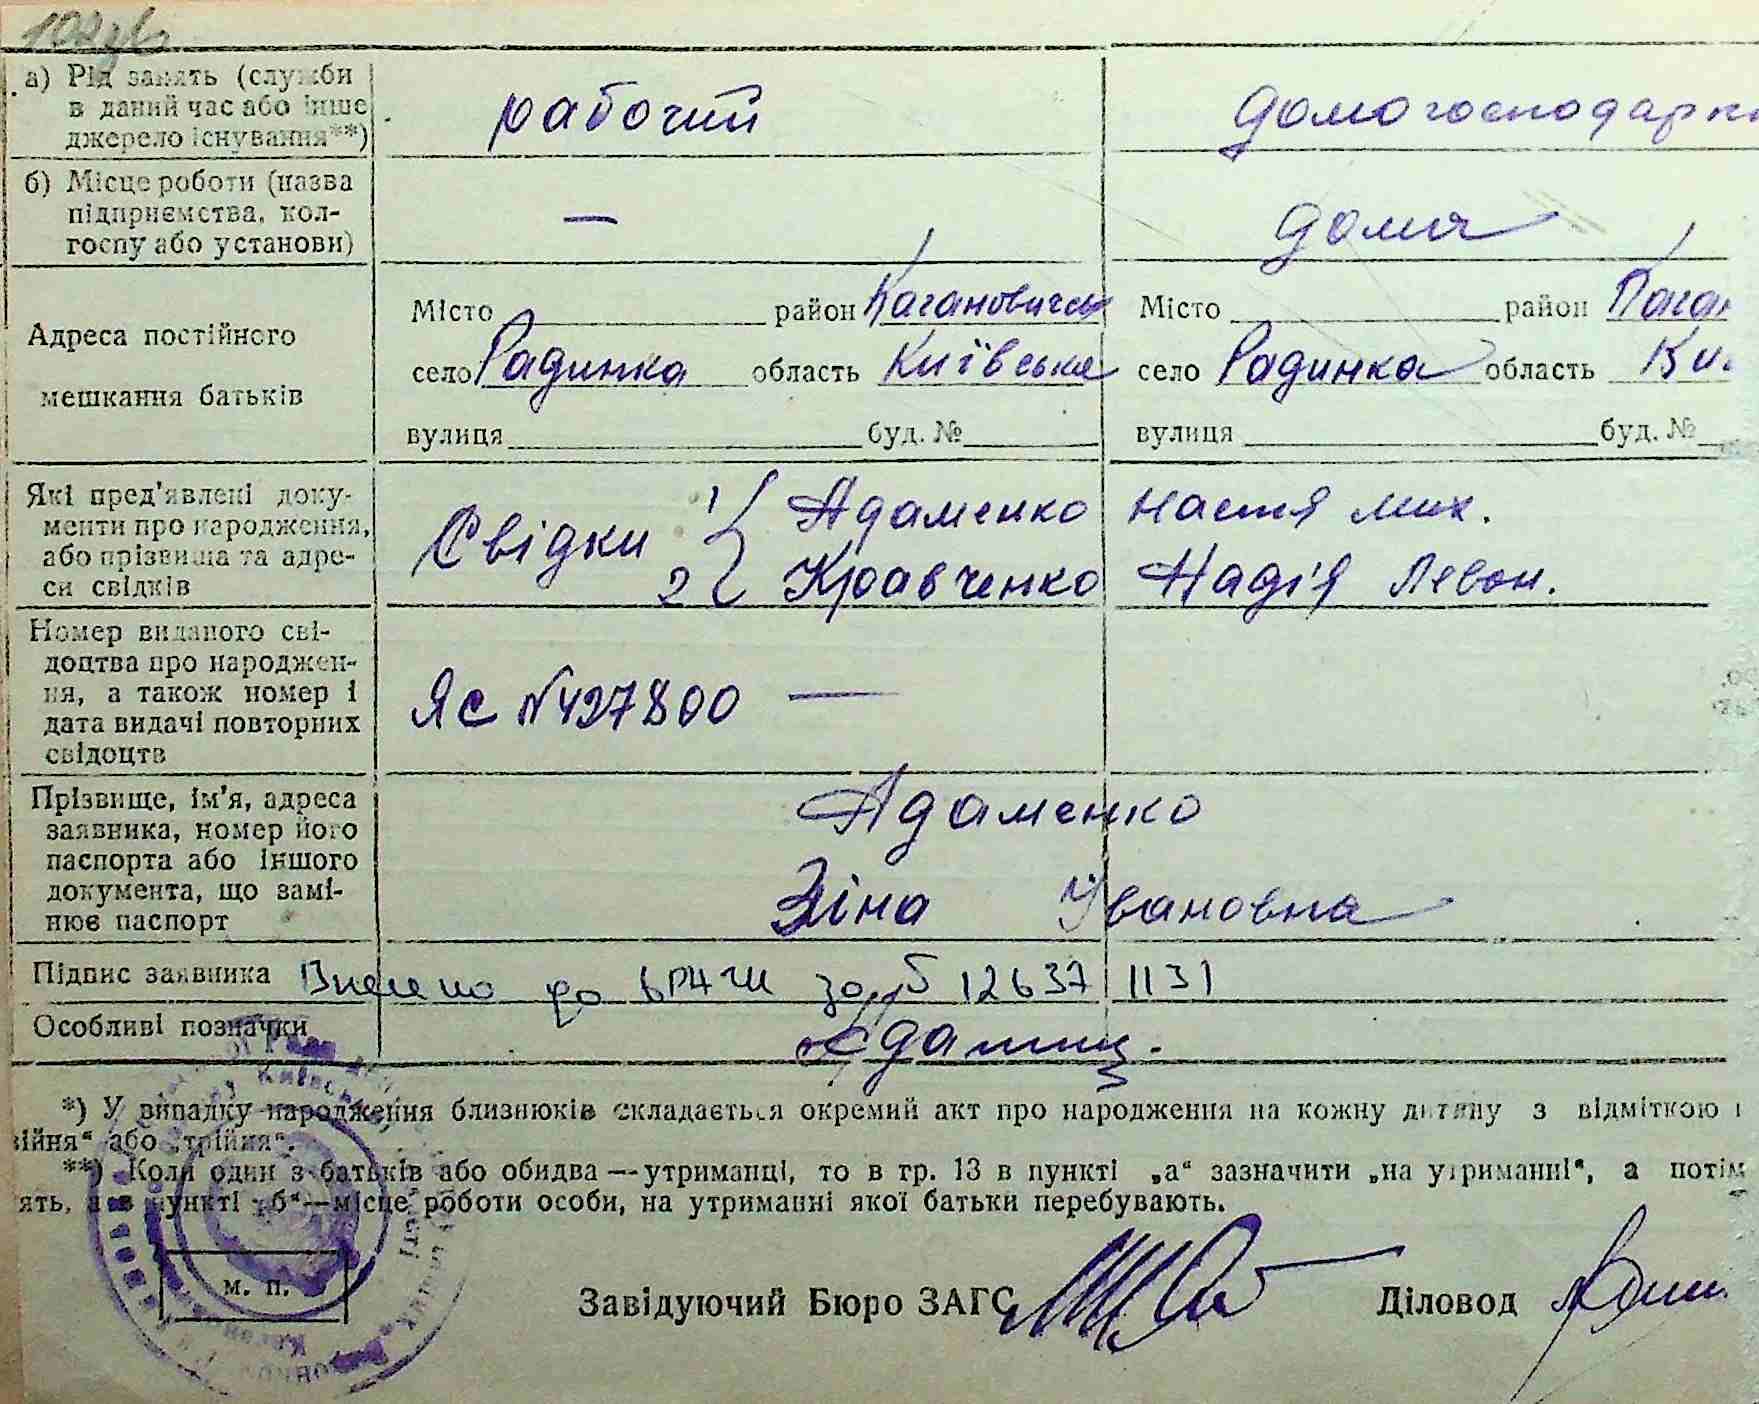 а) Рід занять (служби
в даний час або інше
джерело існування**)
рабочий
домогосподарк
б) Місце роботи (назва
підприємства, кол-
госпу або установи)
—
дома
Адреса постійного
мешкання батьків
Місто район Кагановичськ
село Радинка область Київська
вулиця буд. №
Місто район Каган
село Радинка область Ки
вулиця буд. №
Які пред'явлені доку-
менти про народження,
або прізвища та адре-
си свідків
Свідки 1 Адаменко Настя Мих.
2 Кравченко Надія Левон.
Номер виданого сві-
доцтва про народжен-
ня, а також номер і
дата видачі повторних
свідоцтв
ЯС № 427800 —
Прізвище, ім'я, адреса
заявника, номер його
паспорта або іншого
документа, що замі-
нює паспорт
Адаменко
Зіна Івановна
Підпис заявника
Внесено до ДРАЦС за № 12637 1131
Особливі позначки
*) У випадку народження близнюків складається окремий акт про народження на кожну дитину з відміткою
ійня" або „трійня".
**) Коли один з батьків або обидва — утриманці, то в гр. 13 в пункті „а" зазначити „на утриманні", а потім
ять, а в пункті „б" — місце роботи особи, на утриманні якої батьки перебувають.
м. п.
Завідуючий Бюро ЗАГС
Діловод